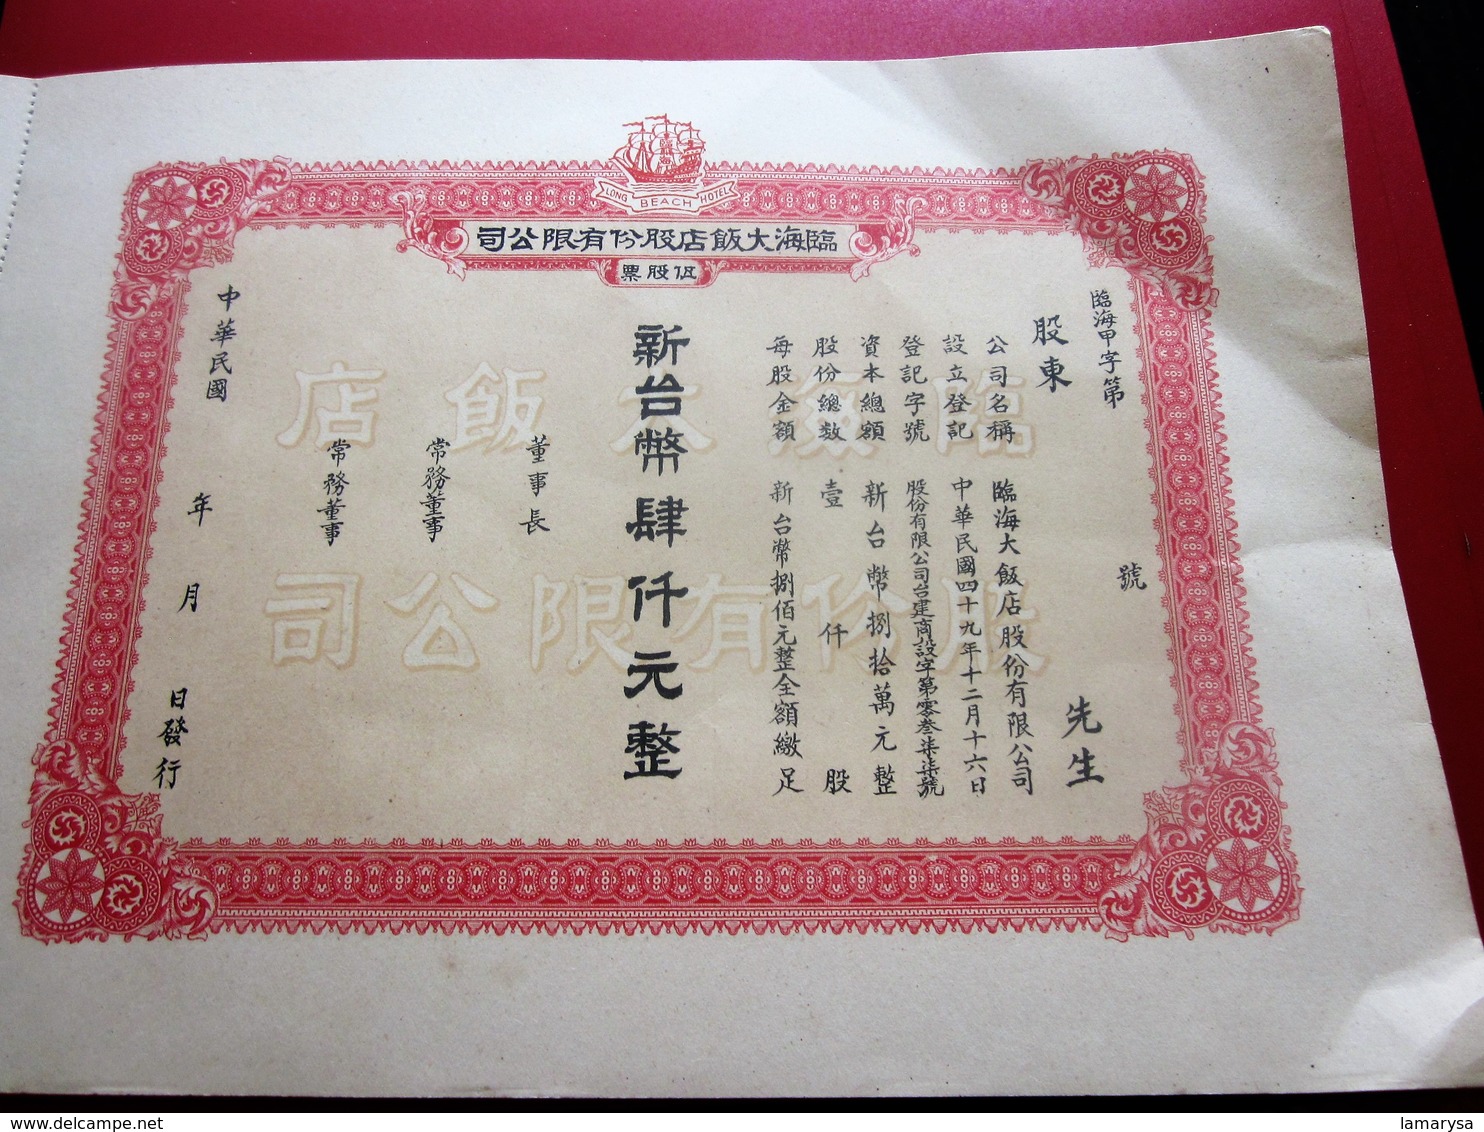 LONG BEACH HOTEL
臨海大飯店股份有限公司
伍股票
臨海甲字第　號
股東　先生
公司名稱　臨海大飯店股份有限公司
設立登記　中華民國四十九年十二月十六日
登記字號　股份有限公司台建商設字第零叁柒柒號
資本總額　新台幣捌拾萬元整
股份總数　壹仟股
每股金額　新台幣捌佰元整全額繳足
新台幣肆仟元整
董事長
常務董事
常務董事
中華民國　年　月　日發行
臨海大飯店
股份有限公司
delcampe.net
lamarysa